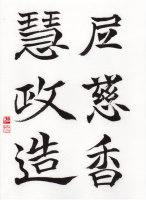 尼慈香
慧政造